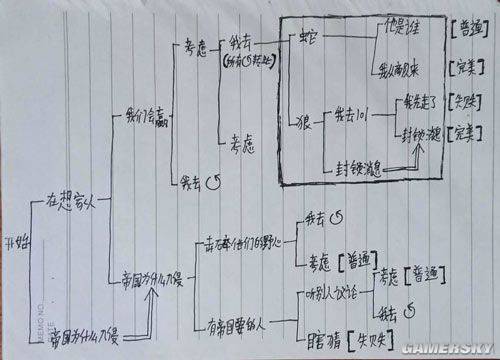 开始
在想家人
帝国为什么入侵
我们会赢
帝国为什么入侵
考虑
我去
我去
(所有↺转此)
考虑
蛇
他是谁
[普通]
我从帝国来
[完美]
狼
我去101
我先走了
[失败]
封锁消息
[完美]
封锁消息
击碎他们的野心
我去
考虑
[普通]
有帝国要的人
听别人议论
考虑
[普通]
我去
瞎猜
[失败]
MEMO NO.
GAMERSKY